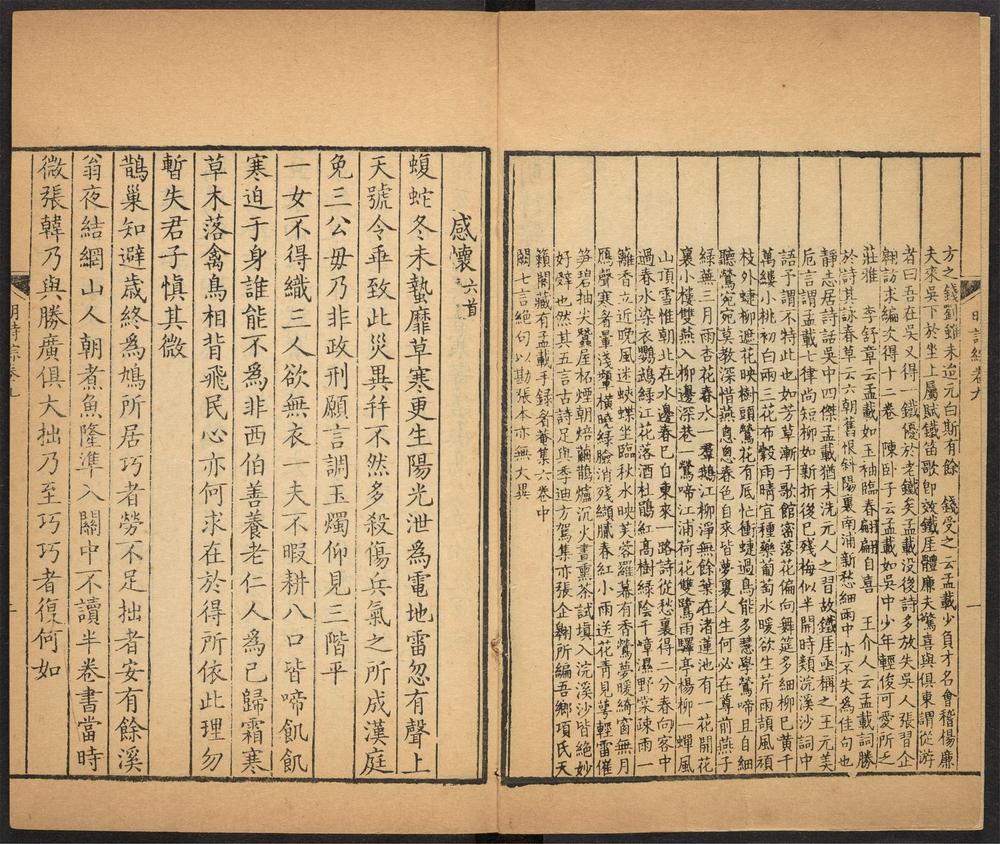 明詩綜卷九
一
方之錢劉雖未迨元白斯有餘　錢受之云孟載少負才名會稽楊廉
夫來吳下於坐上屬賦鐵笛歌即效鐵厓體廉夫驚喜與俱東謂從游
者曰吾在吳又得一鐵優於老鐵矣孟載没後詩多放失吳人張習企
翺訪求編次得十二卷　陳卧子云孟載如吳中少年輕俊可愛所乏
莊雅　李舒章云孟載如玉袖臨春翩翩自喜　王介人云孟載詞勝
於詩其詠春草云六朝舊恨斜陽裏南浦新愁細雨中亦不失為佳句也
靜志居詩話吳中四傑孟載猶未洗元人之習故鐵厓亟稱之王元美
卮言謂孟載七律尚短柳如新折後已殘梅似半開時類浣溪沙詞中
語予謂不特此也如芳草漸于歌館密落花偏向舞筵多細柳已黄千
萬縷小桃初白兩三花布穀雨晴宜種藥葡萄水暖欲生芹雨頡風頏
枝外蝶柳遮花映樹頭鶯花有厎忙衝蜨過鳥能多慧學鶯啼且自細
聽鶯宛宛莫教深惜燕悤悤春色自來皆夢裏人生何必在尊前燕子
綠蕪三月雨杏花春水一羣鵝江柳淨無餘葉在渚蓮池有一花開花
裏小樓雙燕入柳邊深巷一鶯啼江浦荷花雙鷺雨驛亭楊柳一蟬風
山頂雪惟朝北在水邊春已自東來一路詩從愁裏得二分春向客中
過春水染衣鸚鵡綠江花落酒杜鵑紅高樹綠陰千嶂濕野棠疎雨一
籬香立近晚風迷蛺蝶坐臨秋水映芙蓉羅幕有香鶯夢暖綺窗無月
鴈聲寒斜者暈淺顰橫曉綠臉消殘纈膩春紅小雨送花靑見萼輕雷催
筍碧抽尖蠶屋柘煙朝焙繭鵲爐沉火晝熏茶試填入浣溪沙皆絕妙
好辭也然其五言古詩足與季迪方駕集亦張企翺所編吾鄉項氏天
籟閣藏有孟載手録眷菴集六卷中
闕七言絕句以勘張本亦無大異
感懷六首
蝮蛇冬未蟄靡草寒更生陽光泄為電地雷忽有聲上
天號令乖致此災異幷不然多殺傷兵氣之所成漢庭
免三公毋乃非政刑願言調玉燭仰見三階平
一女不得織三人欲無衣一夫不暇耕八口皆啼飢飢
寒迫于身誰能不為非西伯善養老仁人為己歸霜寒
草木落禽鳥相背飛民心亦何求在於得所依此理勿
暫失君子慎其微
鵲巢知避歲終為鳩所居巧者勞不足拙者安有餘溪
翁夜結網山人朝煮魚隆準入關中不讀半卷書當時
微張韓乃與勝廣俱大拙乃至巧巧者復何如